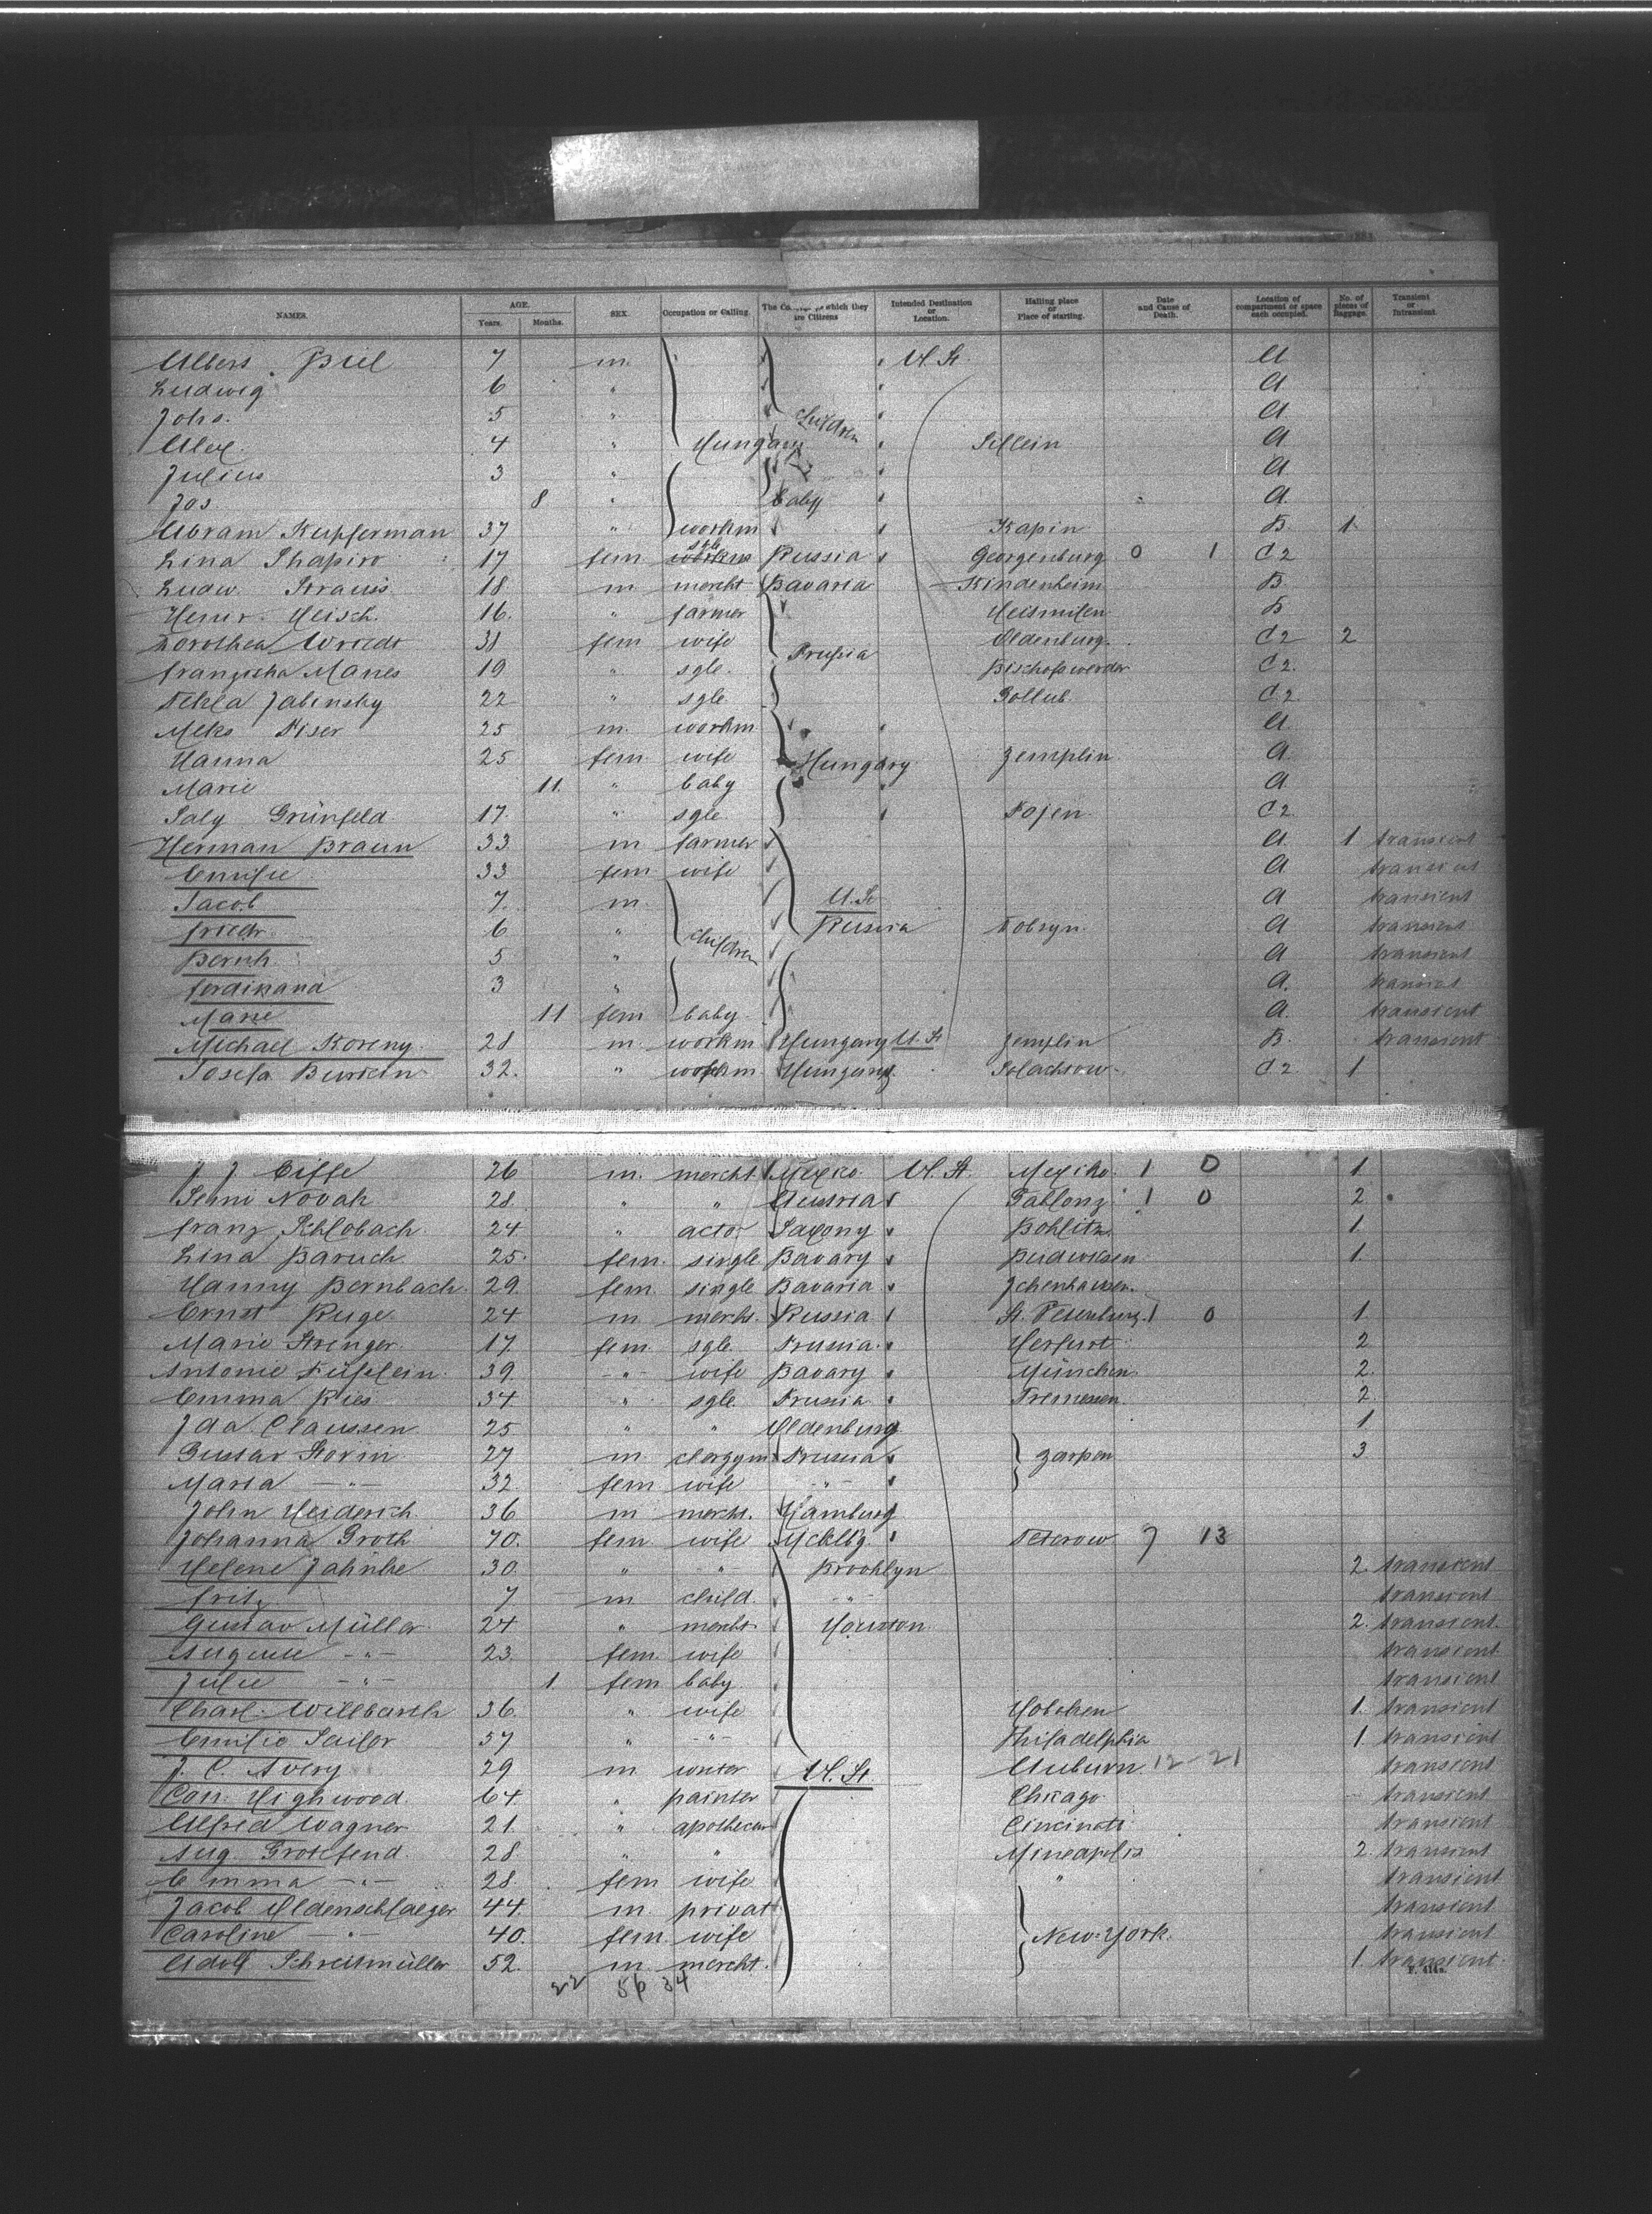 NAMES. AGE. Years. Months. SEX. Occupation or Calling. The Co which they are Citizens Intended Destination or Location. Hailing place or Place of starting. Date and Cause of Death. Location of compartment or space each occupied. No. of pieces of Baggage. Transient or Intransient.
Albert Biel 7 m. U. St. A
Ludwig 6 " A
Johs. 5 " children A
Alex. 4 " Hungary A
Julius 3 " A
Jos 8 " baby A.
Abram Kupferman 37 " workm Kapin B. 1
Lina Shapiro 17 fem sgle Russia Georgenburg 0 1 C 2
Ludw. Strauss 18 m mercht Bavaria Kindenheim B.
Heinr. Heisch. 16. " farmer B
Dorothea Wriedt 31 fem wife Oldenburg. C 2 2
Prussia
Franziska Manes 19 " sgle. Bischofswerder C 2.
Tekla Jabinsky 22 " sgle Gollub. C 2
25 m. workm A.
Hanna 25 fem wife Hungary Zemplin A.
Marie 11. " baby A
Saly Grünfeld 17. " sgle C 2.
Herman Braun 33 m farmer A. 1 transient
Emilie 33 fem wife A transient
Jacob 7. m. U. St A transient
Friedr. 6 " children Russia A transient
Bernh. 5 " A transient
Ferdinand 3 " A. transient
Marie 11 fem baby A. transient
Michael Koreny. 28 m. workm Hungary U. St Zemplin B. transient
Josefa 32. " workm. Hungary C 2. 1
J. J. Eiffe 26 m. mercht Mexico. U. St. Mexiko. 1 0 1.
Novak 28. " " Austria Gablonz 1 0 2.
Franz Schlobach. 24 " actor Saxony Bohlitz. 1.
Lina Baruch 25. fem. single Bavary 1.
Hanny Bernbach. 29. fem. single Bavaria Ichenhausen.
Ernst Ruge. 24 m merch. Russia St. Petersburg. 1 0 1
Marie Strenger. 17. fem. sgle. Prussia. 2
Antonie 39. " wife Bavary München. 2.
Emma Ries 34 " sgle. Prussia Tremessen. 2.
Ida Claussen 25 " " Oldenburg 1
Gustav Storm 27 m. clergym Prussia Zarpen 3
Maria " 32. fem wife "
John Heiderich. 36 m mercht. Hamburg
Johanna Groth 70. fem. wife Mcklbg. Teterow 7 13
Helene Jahnke 30. " " Brooklyn 2. transient
Fritz 7 m child. " transient
Gustav Müller 24 " mercht. Houston. 2. transient.
Auguste " 23. fem. wife transient.
Julie " 1 fem baby transient
Charl. Willbarth 36. " wife Hoboken 1. transient
Emilie Sailer 57 " " Philadelphia 1. transient
J. C. Avery 29 m. writer U. St. Auburn 12-21 transient
Carr. Highwood. 64. " painter Chicago. transient
Alfred Wagner 21. " apothecar Cincinati. transient
Aug. Grotefend. 28. " " Mineapolis 2. transient
Emma " 28. fem wife " transient
Jacob Oldenschlaeger 44. m. privat transient
Caroline " 40. fem. wife New-York. transient
Adolf Schreitmüller 52. m. mercht. 1. transient.
22 56 34